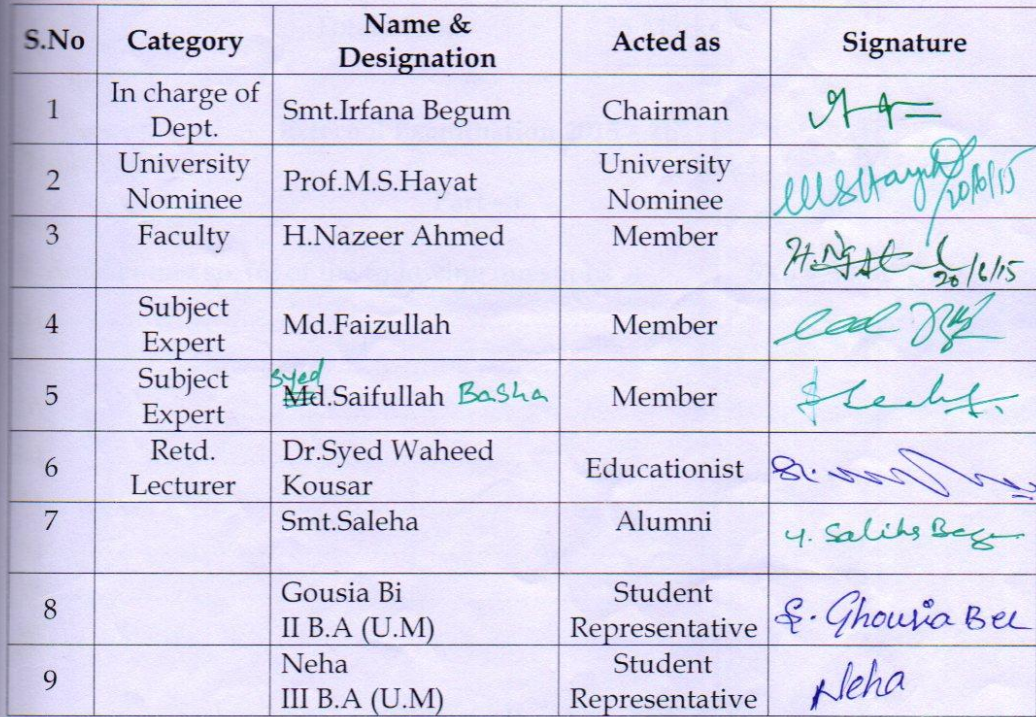 S.No Category Name & Designation Acted as Signature
1 In charge of Dept. Smt.Irfana Begum Chairman
2 University Nominee Prof.M.S.Hayat University Nominee MSHayat 20/6/15
3 Faculty H.Nazeer Ahmed Member 20/6/15
4 Subject Expert Md.Faizullah Member
5 Subject Expert Syed Md.Saifullah Basha Member
6 Retd. Lecturer Dr.Syed Waheed Kousar Educationist
7 Smt.Saleha Alumni Y. Saliha Beg
8 Gousia Bi II B.A (U.M) Student Representative S. Ghousia Bee
9 Neha III B.A (U.M) Student Representative Neha